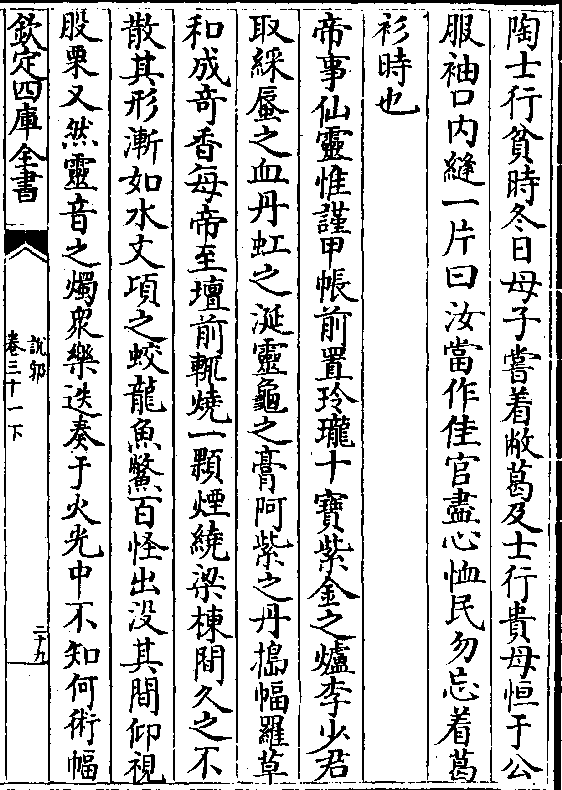 陶士行貧時冬日母子嘗着敝葛及士行貴母恒于公
服袖口内縫一片曰汝當作佳官盡心恤民勿忘着葛
衫時也
帝事仙靈惟謹甲帳前置玲瓏十寶紫金之爐李少君
取綵蜃之血丹虹之涎靈龜之膏阿紫之丹搗幅羅草
和成奇香每帝至壇前輒燒一顆煙繞梁棟間久之不
散其形漸如水文項之蛟龍魚鱉百怪出没其間仰視
股栗又然靈音之燭衆樂迭奏于火光中不知何術幅
欽定四庫全書
説郛
卷三十一下
二十九